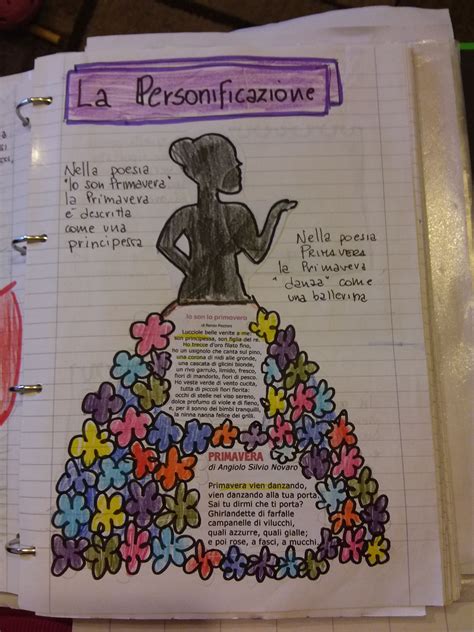 La Personificazione
Nella poesia
"Io son Primavera"
la Primavera
è descritta
come una
principessa
Nella poesia
PRIMAVERA
la Primavera
"danza" come
una ballerina
Io son la primavera
di Renzo Pezzani
Lucciole belle venite a me
son principessa, son figlia del re.
Ho trecce d'oro filato fino,
ho un usignolo che canta sul pino,
una corona di nidi alle gronde,
una cascata di glicini bionde,
un rivo garrulo, limido, fresco,
fiori di mandorlo, fiori di pesco.
Ho veste verde di vento cucita,
tutta di piccoli fiori fiorita:
occhi di stelle nel viso sereno,
dolce profumo di viole e di fieno,
e, per il sonno dei bimbi tranquilli,
la ninna nanna felice dei grilli.
PRIMAVERA
di Angiolo Silvio Novaro
Primavera vien danzando,
vien danzando alla tua porta.
Sai tu dirmi che ti porta?
Ghirlandette di farfalle
campanelle di vilucchi,
quali azzurre, quali gialle;
e poi rose, a fasci, a mucchi.